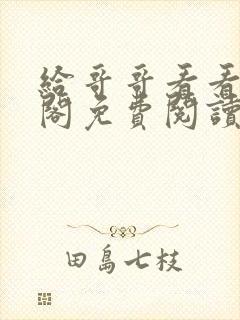 給哥哥看看
閣免費閱讀
田島七枝